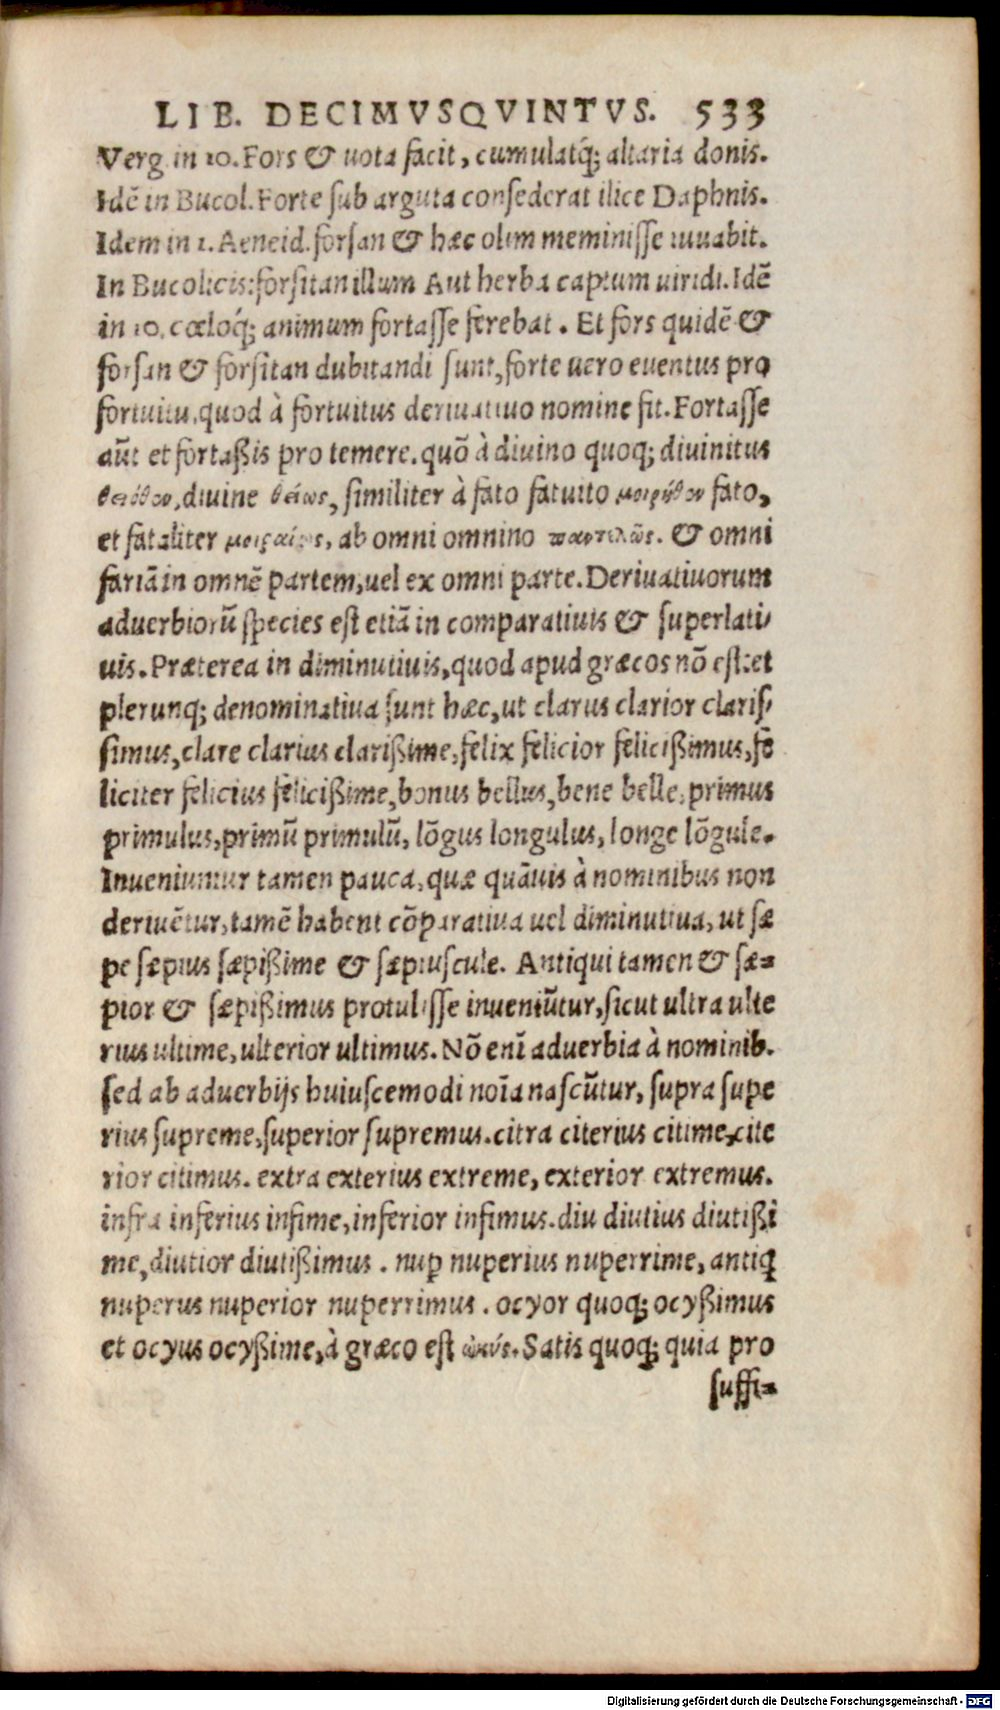 LIB. DECIMVSQVINTVS. 533
Verg. in 10. Fors & uota facit, cumulatq́; altaria donis.
Idẽ in Bucol. Forte sub arguta consederat ilice Daphnis.
Idem in 1. Aeneid. forsan & hæc olim meminisse iuuabit.
In Bucolicis: forsitan illum Aut herba captum uiridi. Idẽ
in 10. cœloq́; animum fortasse ferebat. Et fors quidẽ &
forsan & forsitan dubitandi sunt, forte uero euentus pro
fortuitu, quod à fortuitus deriuatiuo nomine fit. Fortasse
aũt et fortaßis pro temere. quõ à diuino quoq; diuinitus
θεόθεν, diuine θείως, similiter à fato fatuito μοιρόθεν fato,
et fataliter, ab omni omnino παντελῶς. & omni
fariã in omnẽ partem, uel ex omni parte. Deriuatiuorum
aduerbiorũ species est etiã in comparatiuis & superlati/
uis. Præterea in diminutiuis, quod apud græcos nõ est: et
plerunq; denominatiua sunt hæc, ut clarus clarior claris/
simus, clare clarius clarißime, felix felicior felicißimus, fe
liciter felicius felicißime, bonus bellus, bene belle, primus
primulus, primũ primulũ, lõgus longulus, longe lõgule.
Inueniuntur tamen pauca, quæ quãuis à nominibus non
deriuẽtur, tamẽ habent cõparatiua uel diminutiua, ut sæ
pe sæpius sæpißime & sæpiuscule. Antiqui tamen & sæ=
pior & sæpißimus protulisse inueniũtur, sicut ultra ulte
rius ultime, ulterior ultimus. Nõ enĩ aduerbia à nominib.
sed ab aduerbijs huiuscemodi noĩa nascũtur, supra supe
rius supreme, superior supremus. citra citerius citime, cite
rior citimus. extra exterius extreme, exterior extremus.
infra inferius infime, inferior infimus. diu diutius diutißi
me, diutior diutißimus. nuꝑ nuperius nuperrime, antiq̃
nuperus nuperior nuperrimus. ocyor quoq; ocyßimus
et ocyus ocyßime, à græco est ὠκύς. Satis quoq; quia pro
suffi=
Digitalisierung gefördert durch die Deutsche Forschungsgemeinschaft - DFG